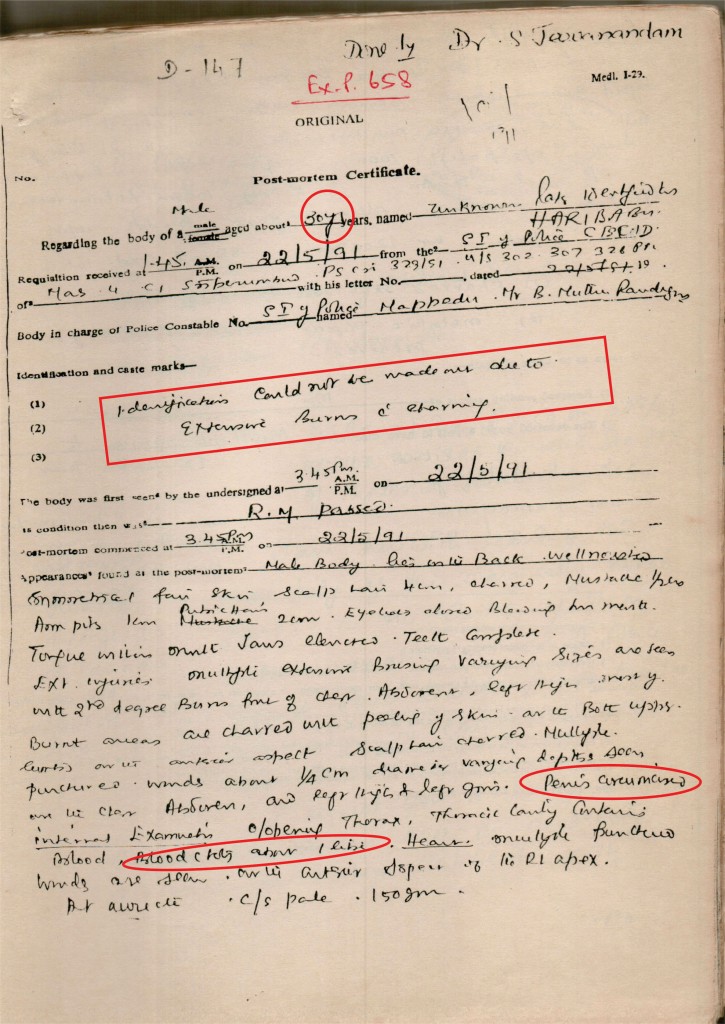 Done by Dr. S Jaranandam
D-147
Ex.P. 658
Medl. I-29.
ORIGINAL
No.
Post-mortem Certificate.
Male
Regarding the body of a male/female aged about 30y years, named Unknown Later Identified as
HARIBABU
Requisition received at 1.45 A.M./P.M. on 22/5/91 from the S I of Police CBCID
of Mas. 4 C1 Sriperumbudur PS Cr 329/91 u/s 302 307 326 with his letter No. , dated 22/5/91
Body in charge of Police Constable No. S I of Police named Mappedu. Mr B. Muthu Pandian
Identification and caste marks—
(1) Identification Could not be made out due to
(2) Extensive Burns c charring.
(3)
The body was first seen by the undersigned at 3.45 Pm. A.M./P.M. on 22/5/91.
Its condition then was R.M passed.
Post-mortem commenced at 3.45 Pm P.M. on 22/5/91
Appearances found at the post-mortem Male Body lies on its Back wellnourished
Symmetrical fair Skin Scalp hair 4cm, charred, Mustache 1/2cm
Arm pits 1cm Pubic Hair Mustache 2cm. Eyelids closed Bleeding from mouth.
Tongue within mouth Jaws clenched. Teeth Complete.
Ext. injuries multiple extensive Bruising varying sizes are seen
with 2nd degree Burns front of chest. Abdomen, left thigh
Burnt areas are charred with peeling of skin. on the Both upper
limbs on its anterior aspect Scalp hair charred. Multiple
punctured wounds about 1/4 cm diameter varying depths seen
on the chest Abdomen, and left thigh & left groin. Penis circumcised
internal Examination o/opening Thorax, Thoracic Cavity Contains
Blood, Blood Clots about 1 litre. Heart multiple Punctured
wounds are seen. on its anterior aspect of the Rt apex.
At auricle. C/s pale. 150gm.